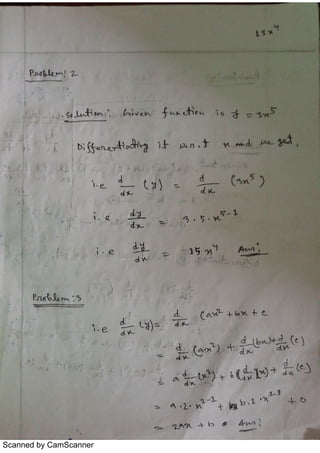 15x⁴
Problem: 2
Solution: Given function is y = 3x⁵
Differentiating it w.r.t x and we get,
i.e d/dx (y) = d/dx (3x⁵)
i.e. dy/dx = 3.5.x⁵⁻¹
i.e dy/dx = 15x⁴ Ans:
Problem :3
i.e d/dx (y) = d/dx (ax² + bx + c
= d/dx (ax²) + d/dx (bx) + d/dx (c)
= a d/dx (x²) + b d/dx (x) + d/dx (c)
= a.2.x²⁻¹ + b.1.x + 0
= 2ax + b Ans:
Scanned by CamScanner